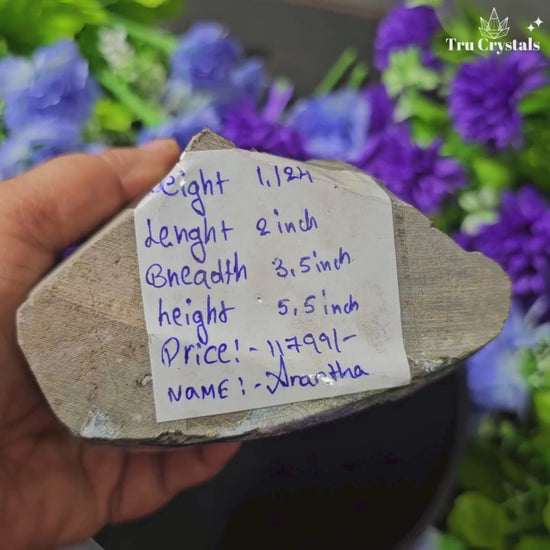 Tru Crystals
eight 1,124
Lenght 2 inch
Breadth 3.5 inch
height 5.5 inch
Price:- 11,799/-
NAME:- Anantha